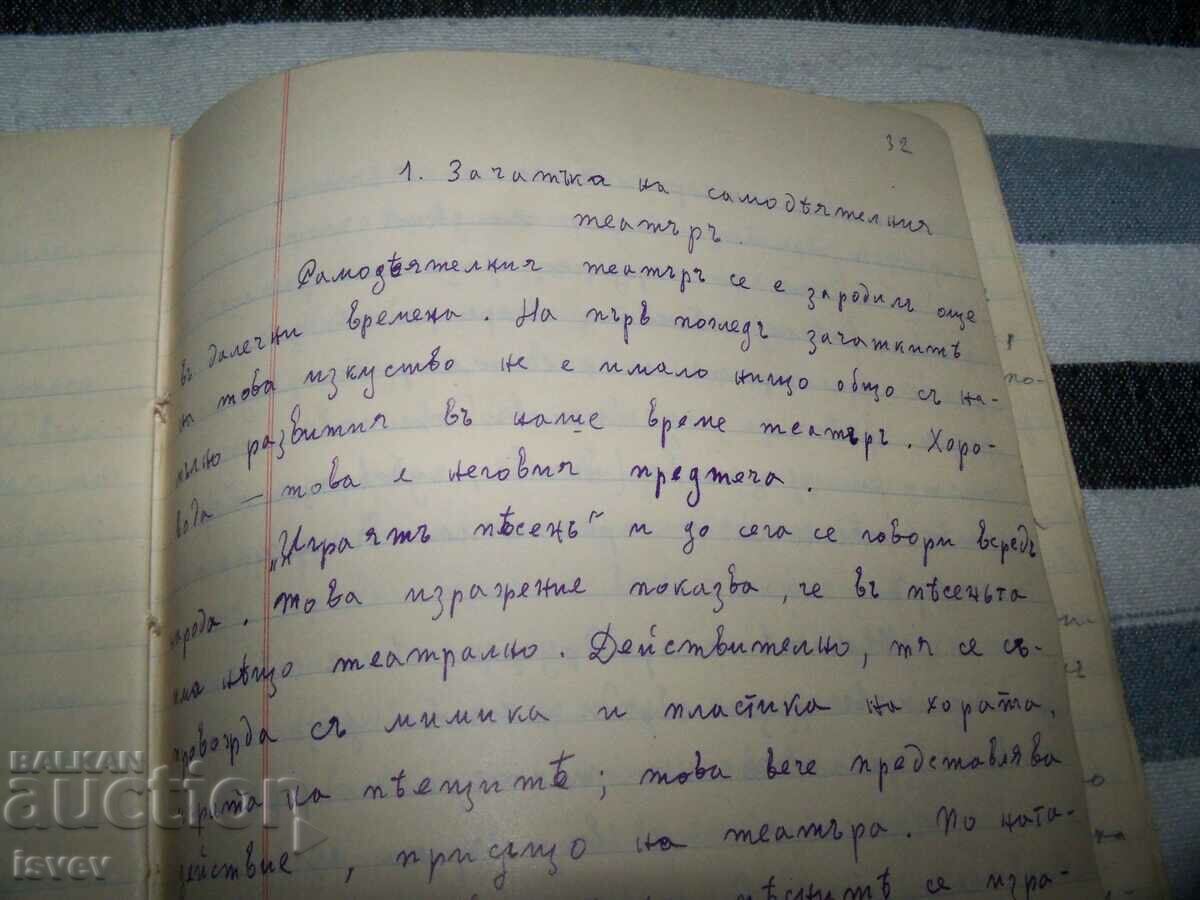 32
1. Зачатъка на самодѣятелния
театъръ.
Самодѣятелния театъръ се е зародилъ още
въ далечни времена. На първ погледъ зачаткитѣ
на това изкуство не е имало нищо общо съ на-
пълно развития въ наше време театъръ. Хоро-
вода — това е неговия предтеча.
„Играятъ пѣсень" и до сега се говори всредъ
народа. Това изражение показва, че въ пѣсеньта
има нѣщо театрално. Действително, тя се съ-
провожда съ мимика и пластика на хората,
играта на пѣещитѣ; това вече представлява
действие, присъщо на театъра. По ната-
пѣснитѣ се изра-
по-
BALKAN
auction
isvev